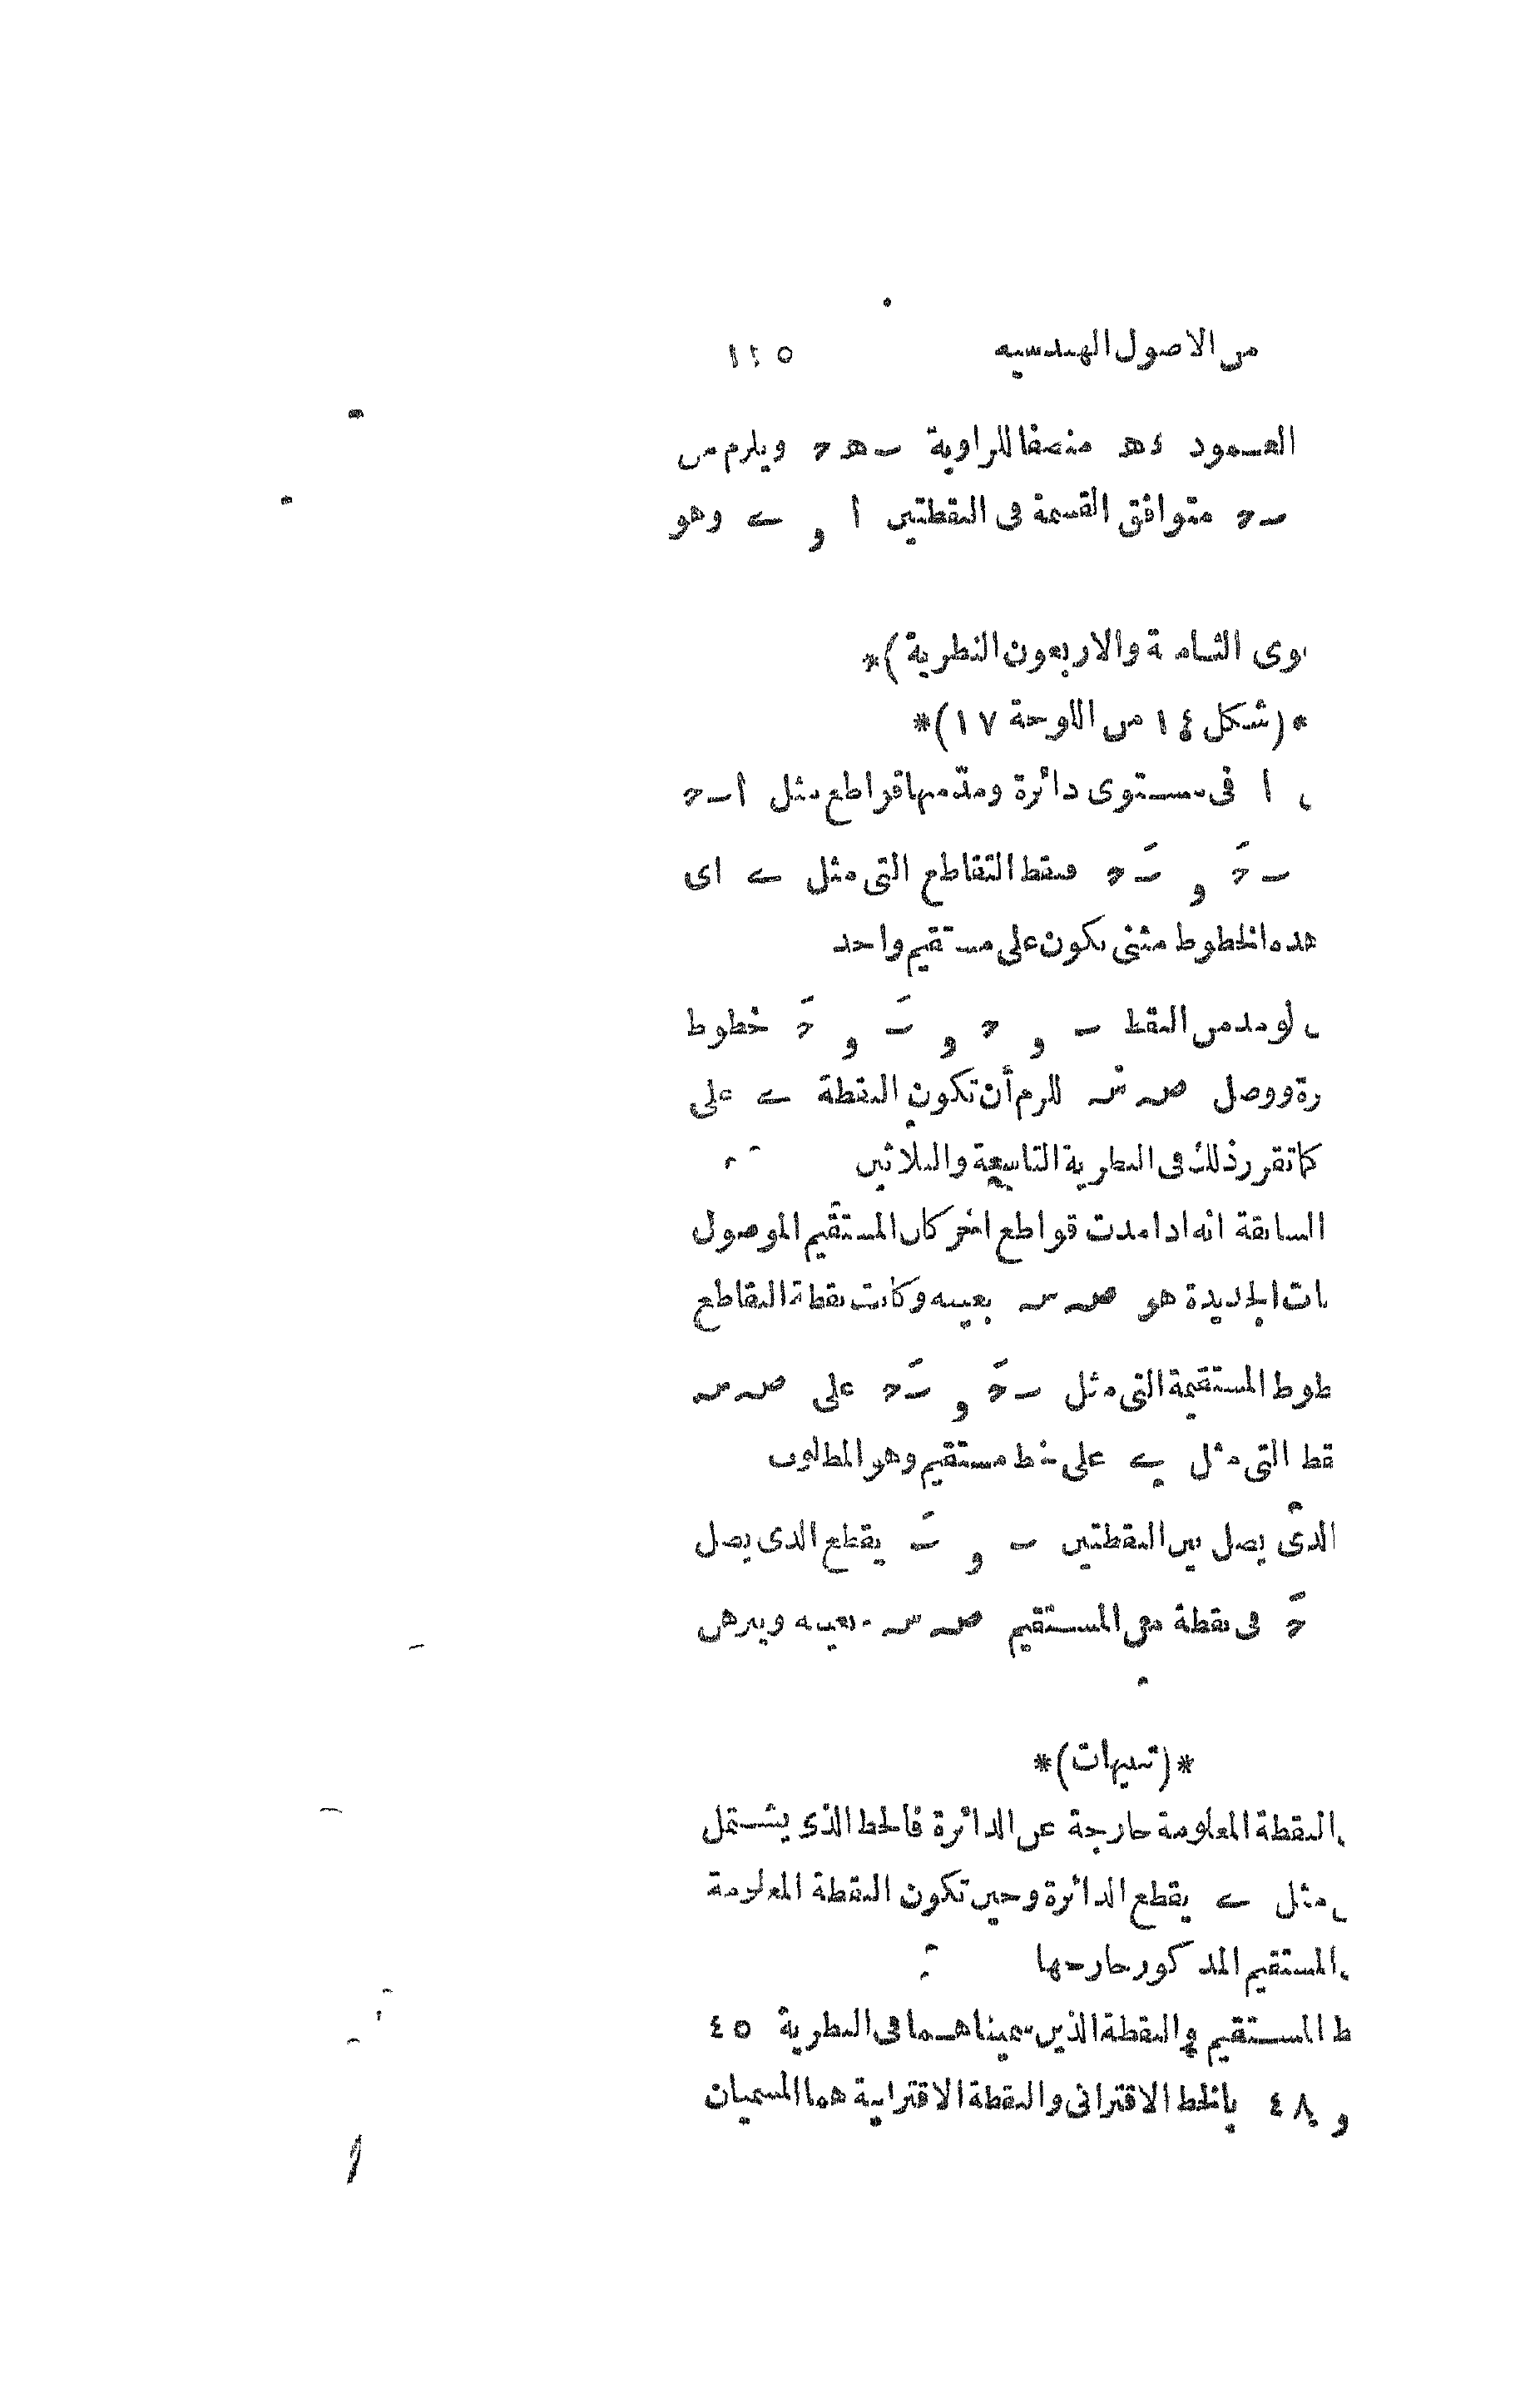 من الاصول الهندسيه ١٤٥
العـمود ءهـ منصفا للزاوية ٮهـ ح ويلزم من
ٮح متوافق القسمة فى النقطتين أ و ے وهو
وى الثـامنة والاربعون النظرية)*
*(شكل ١٤ من اللوحة ١٧)*
ا فى مسـتوى دائرة ومدّ منها قواطع مثل أٮح
ٮحَ و ٮَح فنقط التقاطع التى مثل ے اى
هذه الخطوط مثنى تكون على مستقيم واحد
لو مد من النقط ٮ و ح و ٮَ و حَ خطوط
رة ووصل صہ سہ للزم أن تكون النقطة ے على
كما تقرر ذلك فى النظرية التاسعة والثلاثين
السابقة انه اذا مدت قواطع اخر كان المستقيم الموصول
ات الجديدة هو صہ سہ بعينه وكانت نقطة التقاطع
طوط المستقيمة التى مثل ٮحَ و ٮَح على صہ سہ
قط التى مثل ے على خط مستقيم وهو المطلوب
الذى يصل بين النقطتين ٮ و ٮَ يقطع الذى يصل
حَ فى نقطة من المسـتقيم صہ سہ بعينه ويبرهن
*(تنبيهات)*
النقطة المعلومة خارجة عن الدائرة فالخط الذى يشـتمل
مثل ے يقطع الدائرة وحين تكون النقطة المعلومة
المستقيم المذكور خارجها
ط المسـتقيم والنقطة الذين سميناهـما فى النظرية ٤٥
و ٤٨ بالخط الاقترانى والنقطة الاقترانية هما المسميان